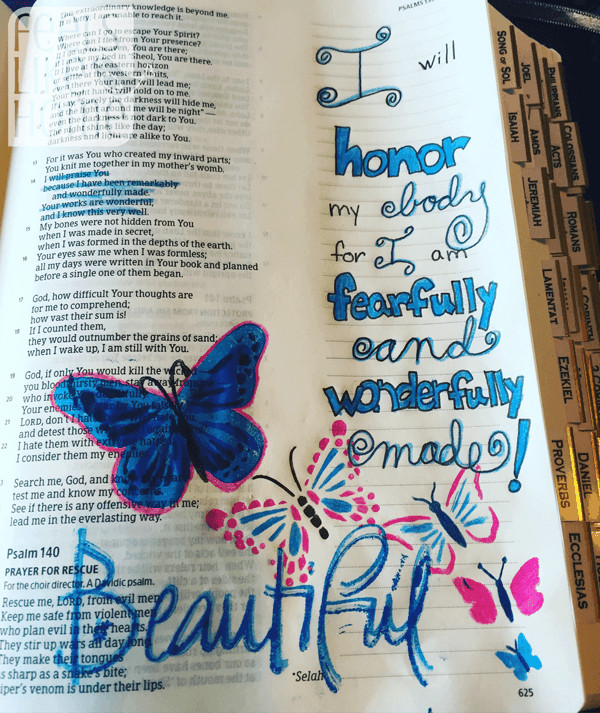 PSALMS 13
This extraordinary knowledge is beyond me.
It is lofty; I am unable to reach it.
Where can I go to escape Your Spirit?
Where can I flee from Your presence?
If I go up to heaven, You are there;
if I make my bed in Sheol, You are there.
If I live at the eastern horizon
settle at the western limits,
even there Your hand will lead me;
Your right hand will hold on to me.
If I say, "Surely the darkness will hide me,
and the light around me will be night" —
even the darkness is not dark to You.
The night shines like the day;
darkness and light are alike to You.
13 For it was You who created my inward parts;
You knit me together in my mother's womb.
14 I will praise You
because I have been remarkably
and wonderfully made.
Your works are wonderful,
and I know this very well.
15 My bones were not hidden from You
when I was made in secret,
when I was formed in the depths of the earth.
16 Your eyes saw me when I was formless;
all my days were written in Your book and planned
before a single one of them began.
17 God, how difficult Your thoughts are
for me to comprehend;
how vast their sum is!
18 If I counted them,
they would outnumber the grains of sand;
when I wake up, I am still with You.
19 God, if only You would kill the wicked
you bloodthirsty men, stay away from
20 who invoke
Your enemies
21 LORD, don't I hate
and detest those
22 I hate them with extreme hatred
I consider them my enemies.
Search me, God, and know
test me and know my
See if there is any offensive way in me;
lead me in the everlasting way.
Psalm 140
PRAYER FOR RESCUE
For the choir director. A Davidic psalm.
Rescue me, LORD, from evil men.
Keep me safe from violent men
who plan evil in their hearts.
They stir up wars all day long.
They make their tongues
as sharp as a snake's bite;
viper's venom is under their lips.
I will
honor
my body
for I am
fearfully
and
wonderfully
made!
Beautiful
*Selah
625
SONG OF SOL
ISAIAH
JEREMIAH
LAMENTAT
EZEKIEL
PROVERBS
JOEL
AMOS
DANIEL
ECCLESIAS
PHILIPPIANS
ACTS
COLOSSIANS
ROMANS
1 CORINTH